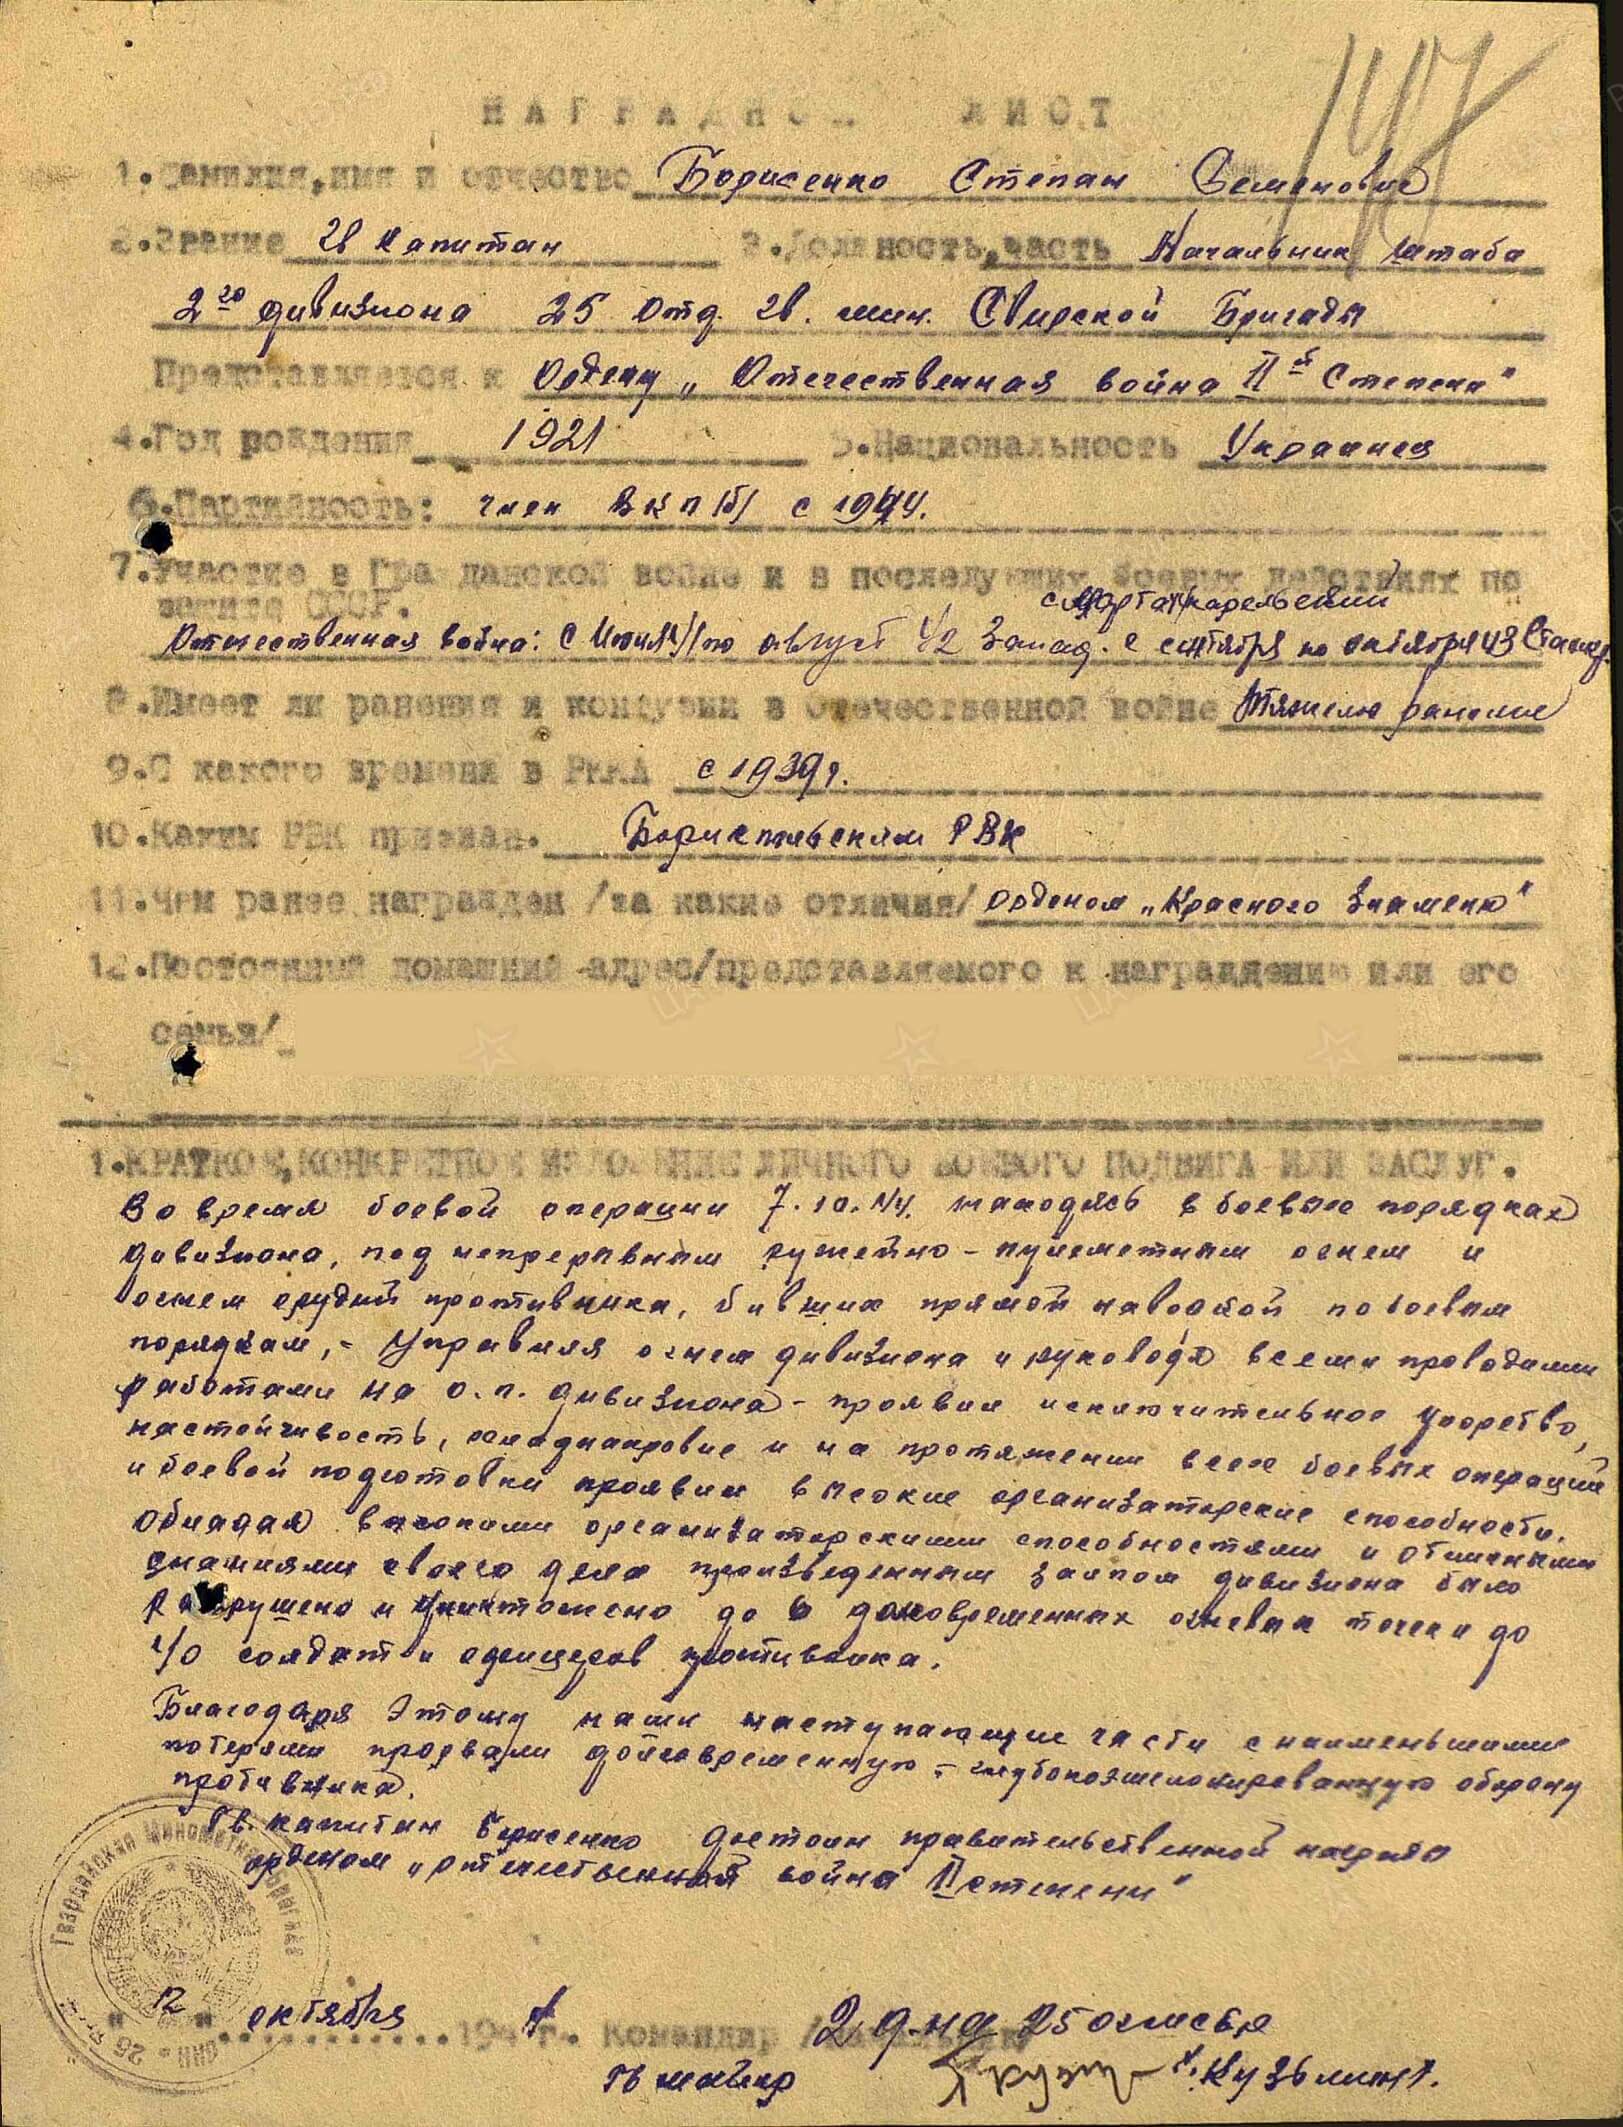 147
НАГРАДНОЙ ЛИСТ
1. Фамилия, имя и отчество Борисенко Степан Семенович
2. Звание Гв Капитан 3. Должность, часть Начальник штаба
2го дивизиона 25 отд. гв. мин. Свирской Бригады
Представляется к Ордену „Отечественная война IIй Степени"
4. Год рождения 1921 5. Национальность Украинец
6. Партийность: член ВКП/б/ с 1944.
7. Участие в Гражданской войне и в последующих боевых действиях по
защите СССР. с марта карельский
Отечественная война: с Июля 41 по август 42 Запад. с сентября по октября 43 Сталингр.
8. Имеет ли ранения и контузии в отечественной войне Тяжелое ранение
9. С какого времени в РККА с 1939 г.
10. Каким РВК призван. Бориспольским РВК
11. Чем ранее награжден /за какие отличия/ орденом „Красного Знамени"
12. Постоянный домашний адрес/представляемого к награждению или его
семьи/
1. КРАТКОЕ, КОНКРЕТНОЕ ИЗЛОЖЕНИЕ ЛИЧНОГО БОЕВОГО ПОДВИГА ИЛИ ЗАСЛУГ.
Во время боевой операции 7.10.44. находясь в боевых порядках
дивизиона, под непрерывным ружейно-пулеметным огнем и
огнем орудий противника, бивших прямой наводкой по боевым
порядкам, - Управляя огнем дивизиона и руководя всеми проводимыми
работами на о.п. дивизиона - проявил исключительное упорство,
настойчивость, хладнокровие и на протяжении всех боевых операций
и боевой подготовки проявил высокие организаторские способности.
Обладая высокими организаторскими способностями и отличными
знаниями своего дела произведенным залпом дивизиона было
разрушено и уничтожено до 6 долговременных огневых точек и до
40 солдат и офицеров противника.
Благодаря этому наши наступающие части с наименьшими
потерями прорвали долговременную - глубокоэшелонированную оборону
противника.
Гв. капитан Борисенко достоин правительственной награды
орденом „Отечественной война II степени"
Гвардейская Минометная Бригада
"12" октября 1944 г. Командир 2 д-на 25 огмсбр
гв майор Кузьмин.